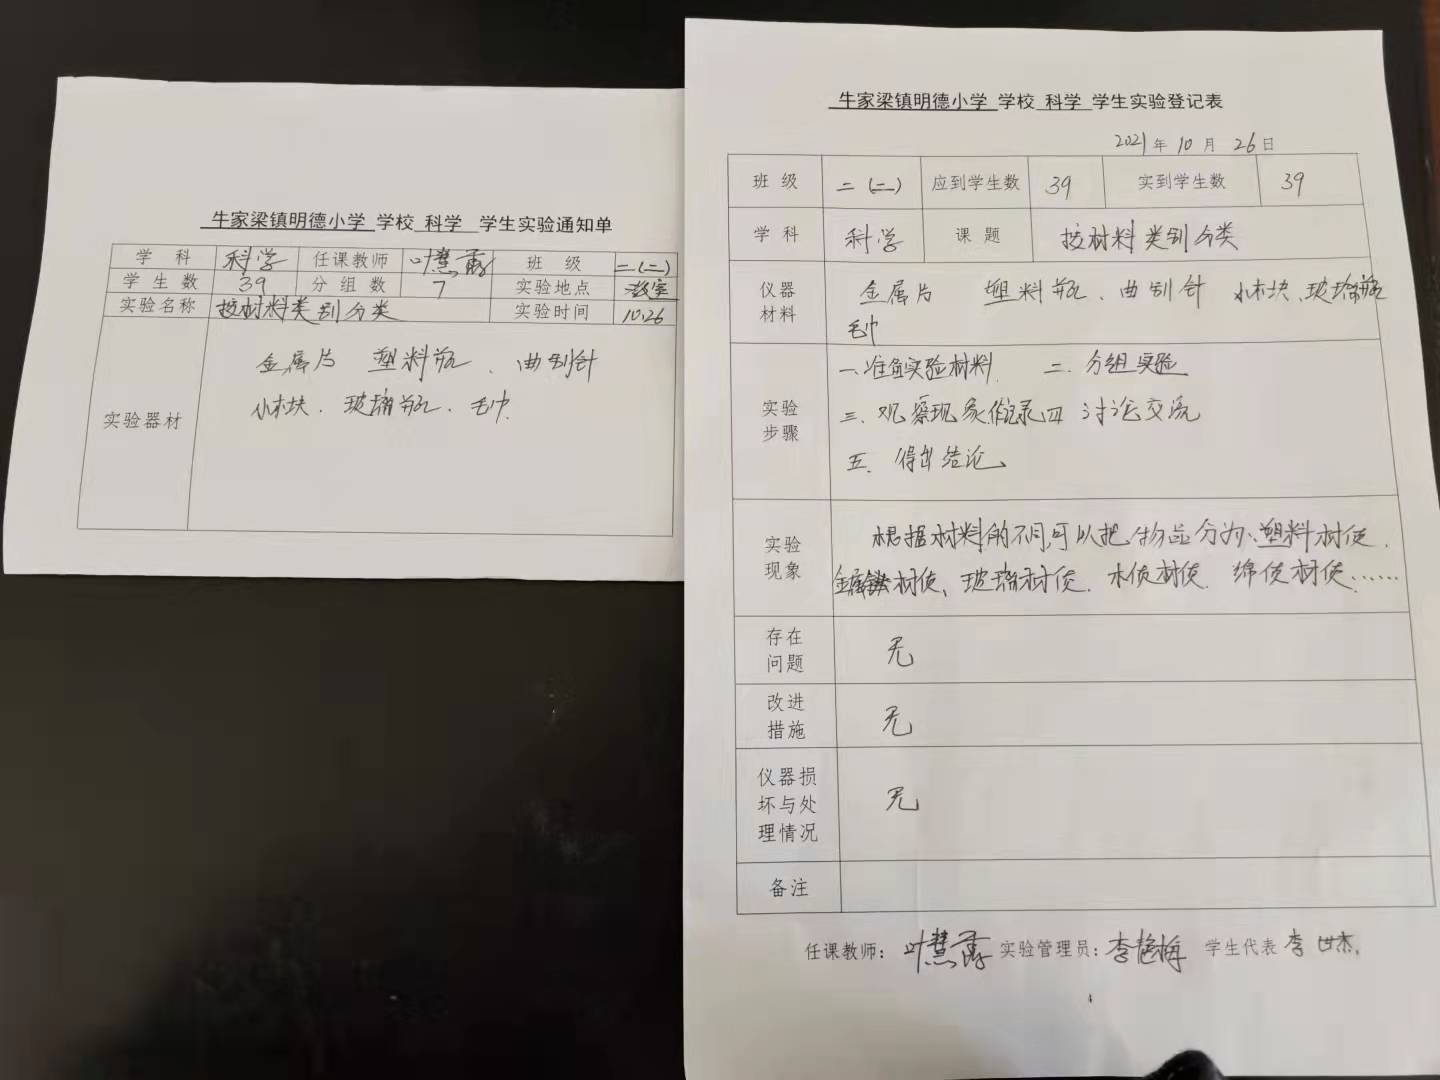 牛家梁镇明德小学 学校 科学 学生实验通知单
学 科 科学 任课教师 叶慧 班 级 二(二)
学生数 39 分组数 7 实验地点 教室
实验名称 按材料类别分类 实验时间 10.26
实验器材
金属片 塑料瓶、曲别针
小木块、玻璃瓶、毛巾
牛家梁镇明德小学 学校 科学 学生实验登记表
2021年 10月 26日
班 级 二(二) 应到学生数 39 实到学生数 39
学 科 科学 课 题 按材料类别分类
仪器材料
金属片 塑料瓶、曲别针 小木块、玻璃瓶
毛巾
实验步骤
一、准备实验材料 二、分组实验
三、观察现象,作记录 四 讨论交流
五、得出结论
实验现象
根据材料的不同,可以把物品分为:塑料材质、
金属材质、玻璃材质、木质材质、绵质材质……
存在问题
无
改进措施
无
仪器损坏与处理情况
无
备注
任课教师: 叶慧 实验管理员: 李艳梅 学生代表 李世杰